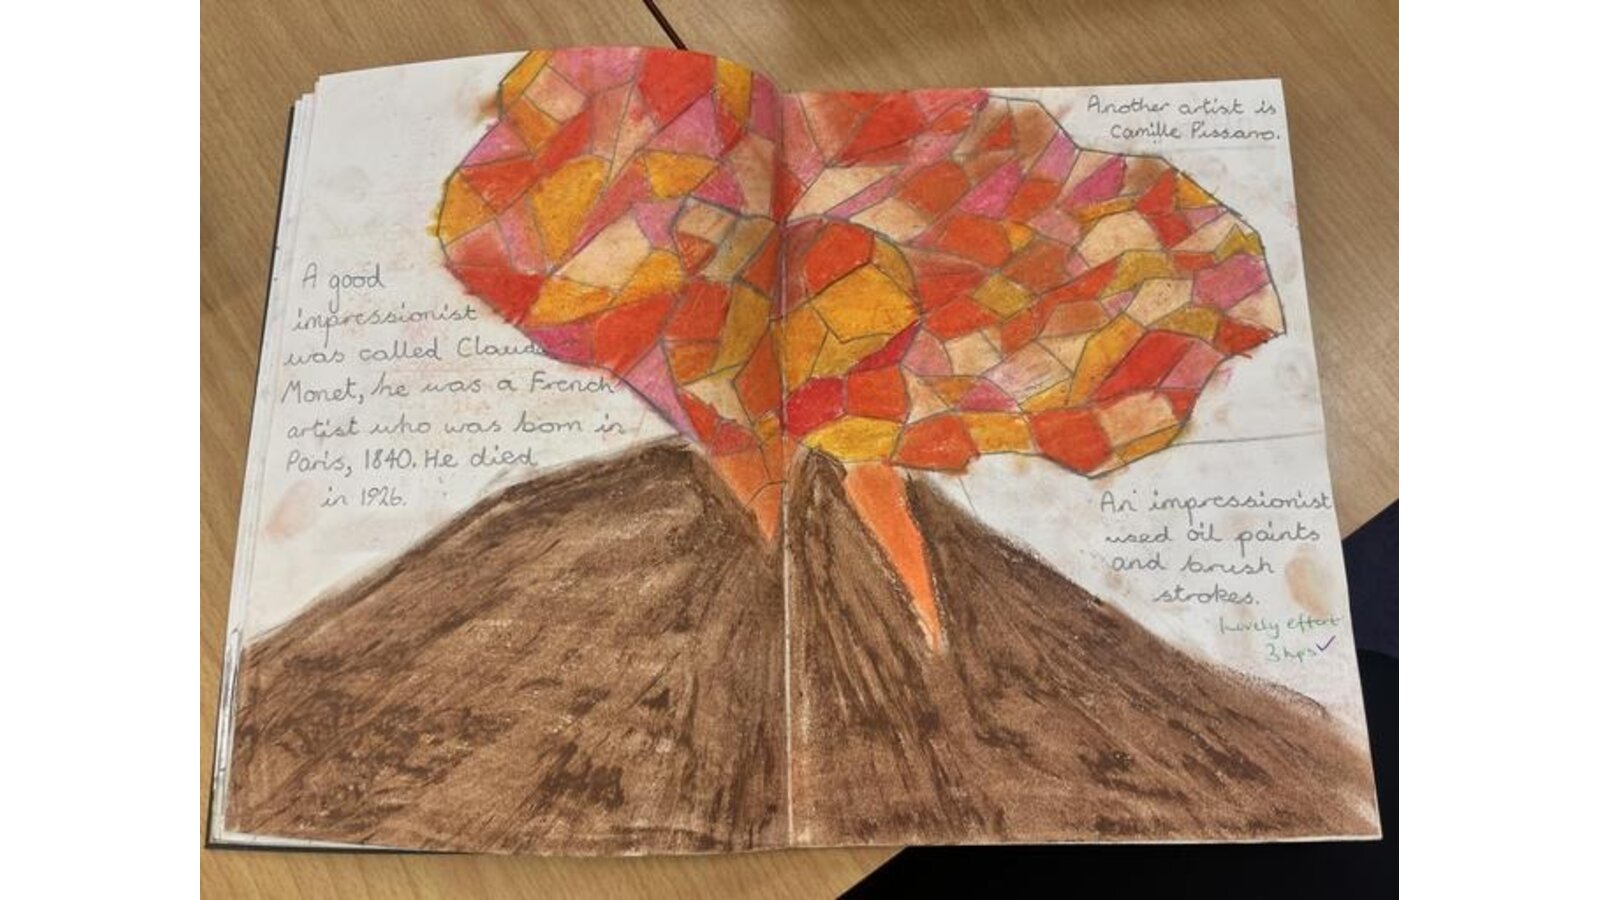 A good
impressionist
was called Claude
Monet, he was a French
artist who was born in
Paris, 1840. He died
in 1926.
Another artist is
Camille Pissaro.
An impressionist
used oil paints
and brush
strokes.
Lovely effort
3hps✓